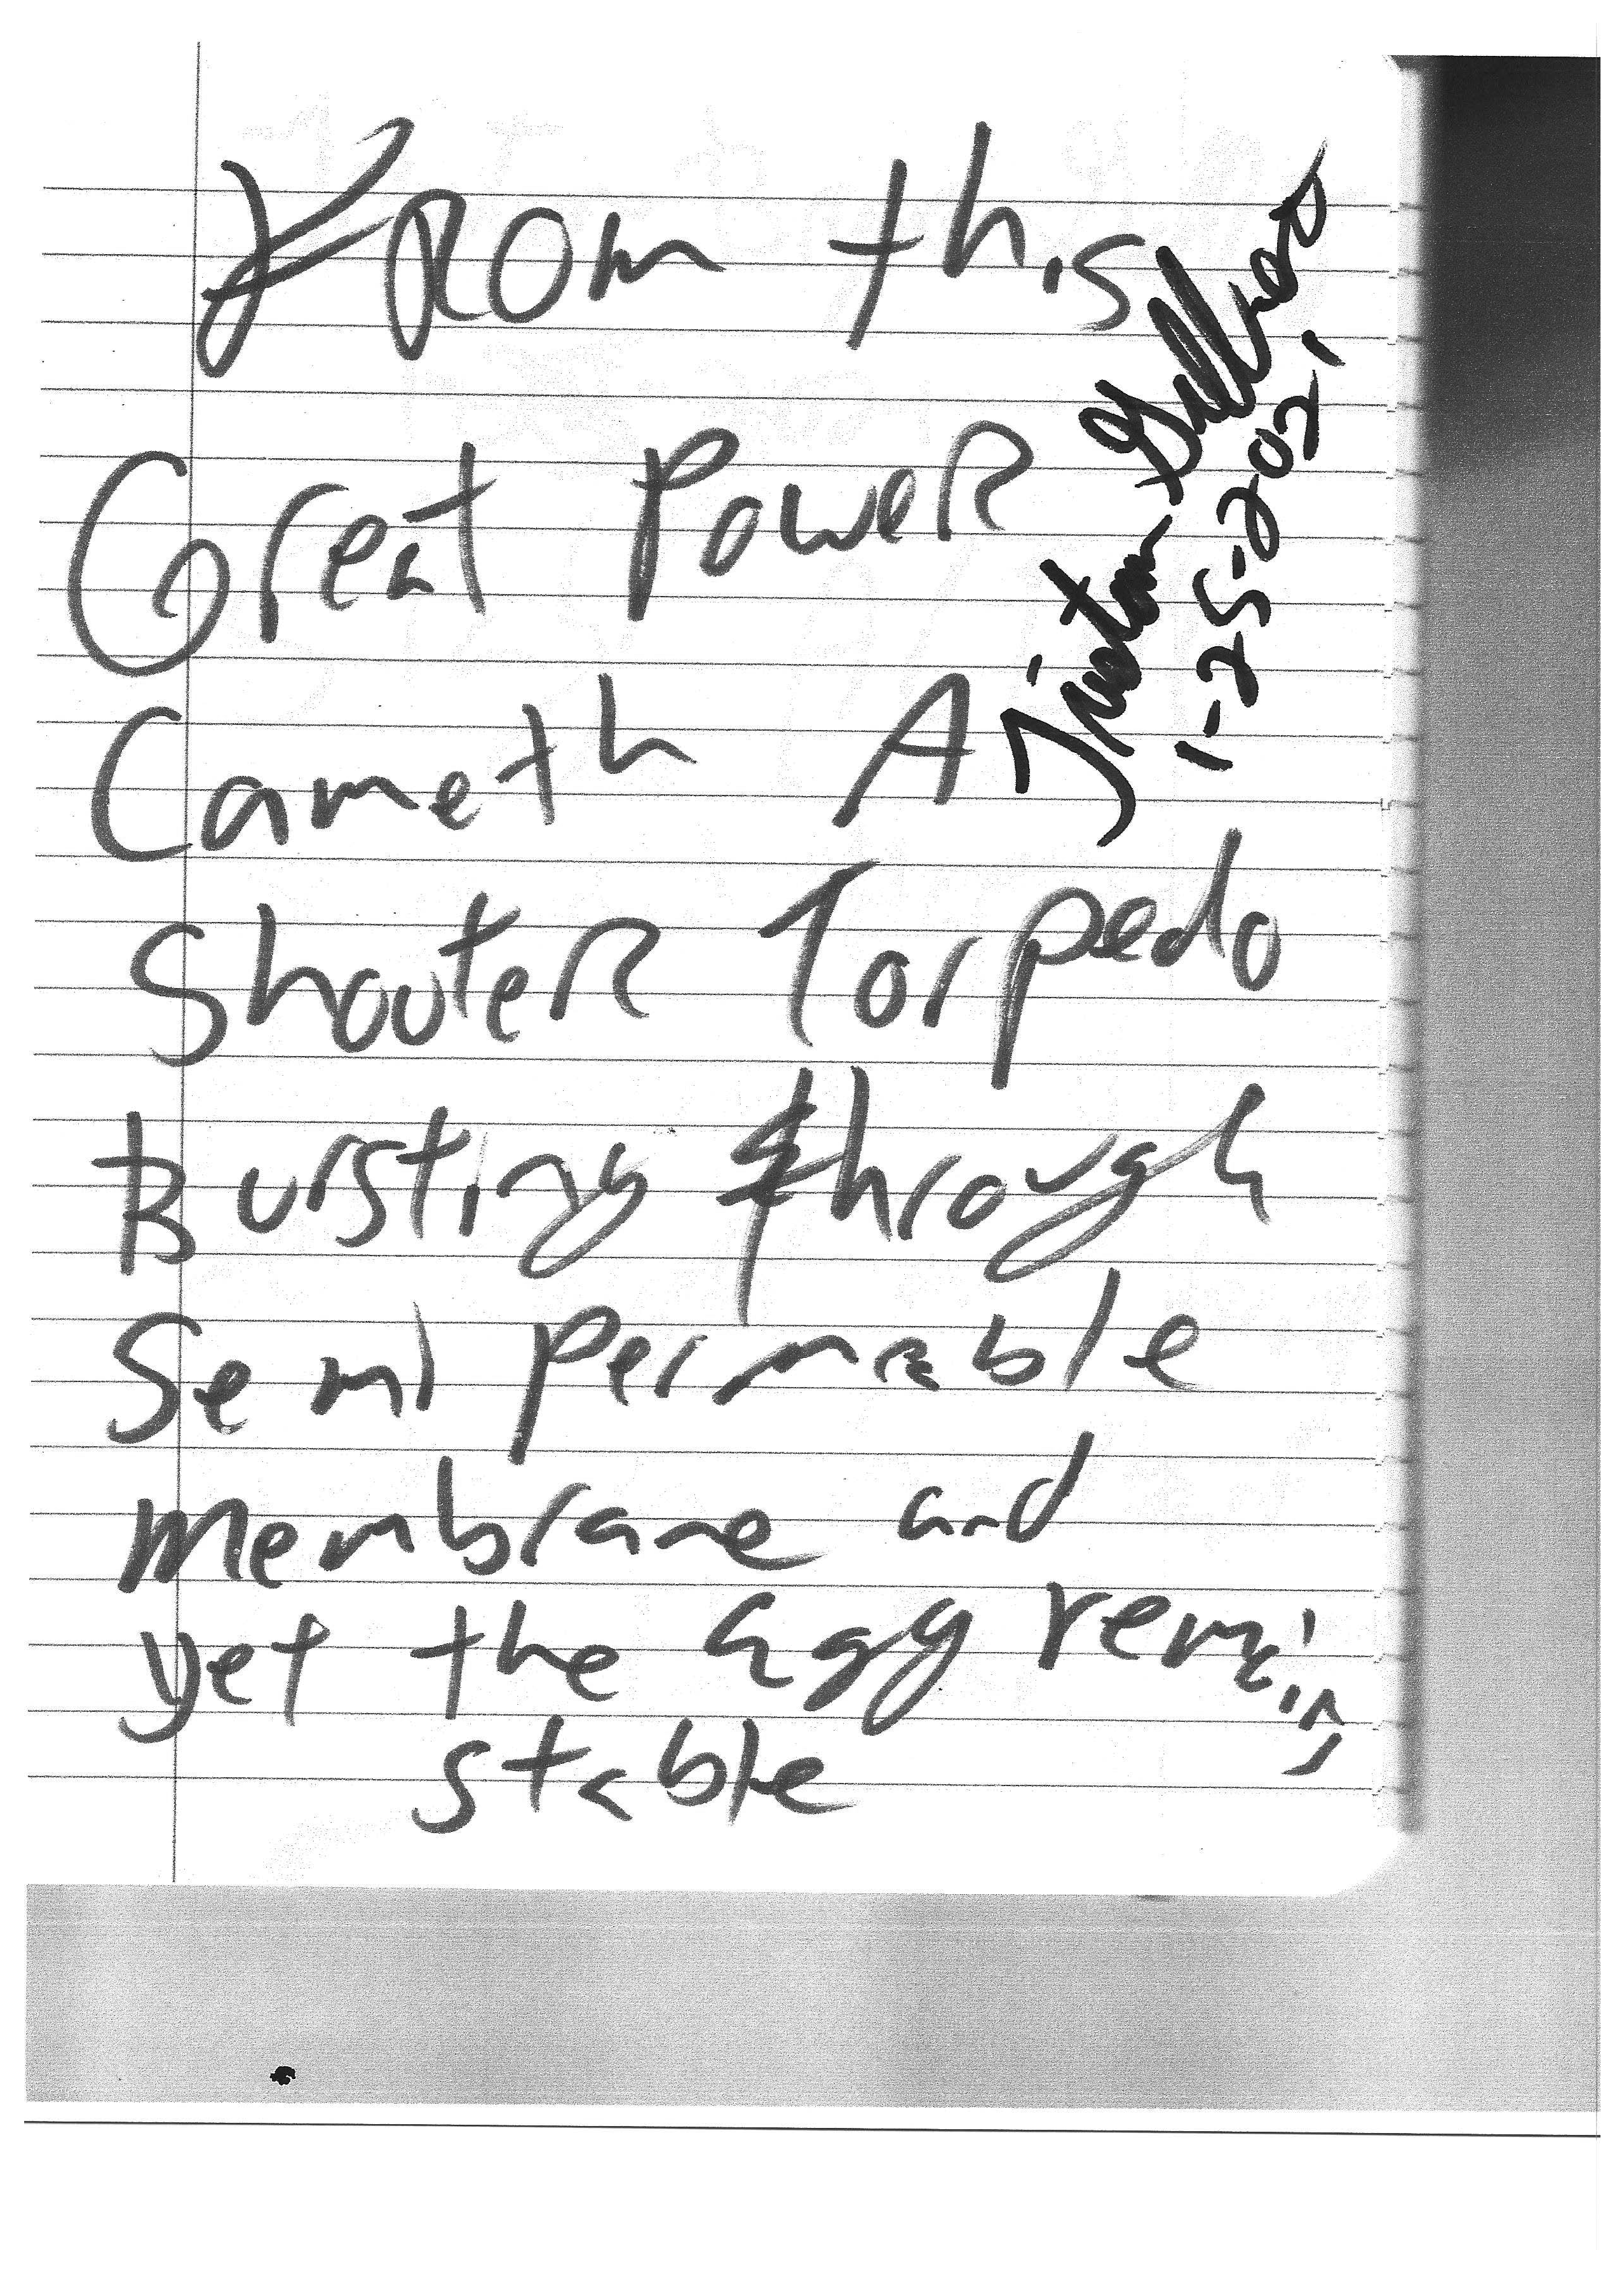 From this
Great Power
Cameth A
Shooter Torpedo
Bursting through
Semi permeable
membrane and
yet the agy remains
stable
Tristan
1-25-2021